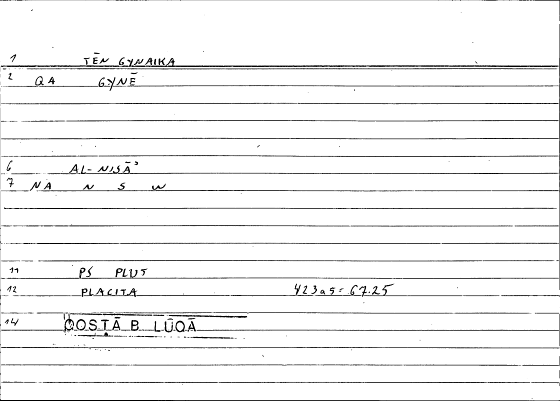 1 TĒN GYNAIKA
2 QA GYNĒ
6 AL-NISĀʾ
7 NA N S W
11 PS PLUT
12 PLACITA 423a5=67.25
14 QOSṬĀ B. LŪQĀ